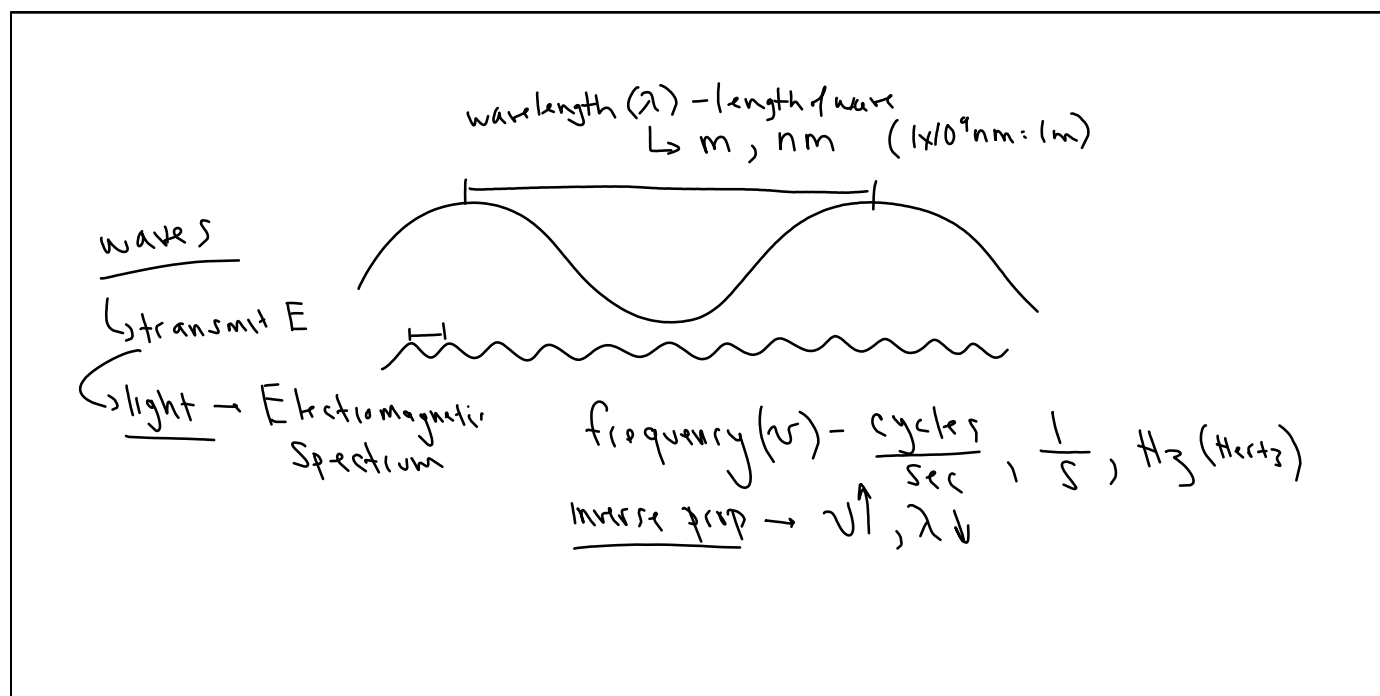 wavelength (λ) – length of wave
↳ m, nm (1x10⁹nm = 1m)
waves
↳ transmit E
↳ light → Electromagnetic
Spectrum
frequency (ν) – cycles/sec, 1/s, Hz (Hertz)
inverse prop → ν↑, λ↓